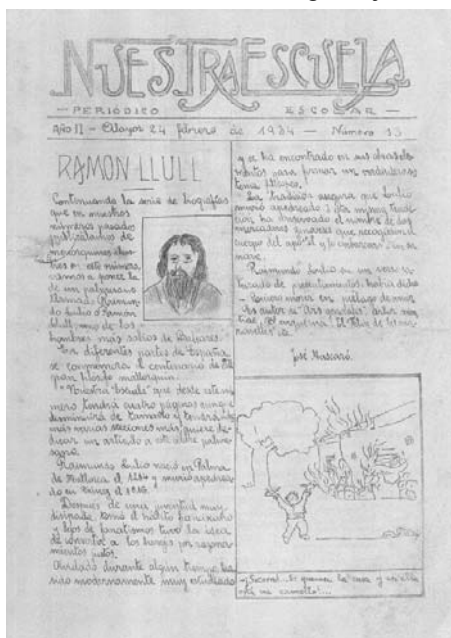 NUESTRA ESCUELA
— PERIÓDICO ESCOLAR —
Año II — Alayor 24 febrero de 1934 — Número 13
RAMON LLULL
Continuando la serie de biografías
que en nuestros
números pasados
publicábamos de
menorquines ilus-
tres en este número,
vamos a poner la
de un palmesano
llamado Raimun-
do Lulio o Ramón
Llull, uno de los
hombres más sabios de Baleares.
En diferentes partes de España
se conmemora el centenario de este
gran filósofo mallorquín.
"Nuestra Escuela" que desde este nú-
mero tendrá cuatro páginas aunque
disminuirá de tamaño y tendrá ade-
más varias secciones más quiere de-
dicar un artículo a este ilustre palme-
sano.
Raimundo Lulio nació en Palma
de Mallorca el y murió apedrea-
do en el
Después de una juventud muy
disipada tomó el hábito franciscano
y lejos de fanatismos tuvo la idea
de convertir a los por razona-
mientos justos.
Olvidado durante algún tiempo ha
sido modernamente muy estudiado
y se ha encontrado en sus obras ele-
mentos para formar un verdadero sis-
tema filosófico.
La tradición asegura que Lulio
murió apedreado y esta misma tradi-
ción ha conservado el nombre de dos
mercaderes que recogieron el
cuerpo del apóstol y lo embarcaron en su
nave.
Raimundo Lulio en un verso sa-
turado de presentimientos, había dicho
— Quiero morir en piélago de amor.
Es autor de "Ars generalis",
José Mascaró.
—¡Socorro!... Se quema la casa y en ella
está mi